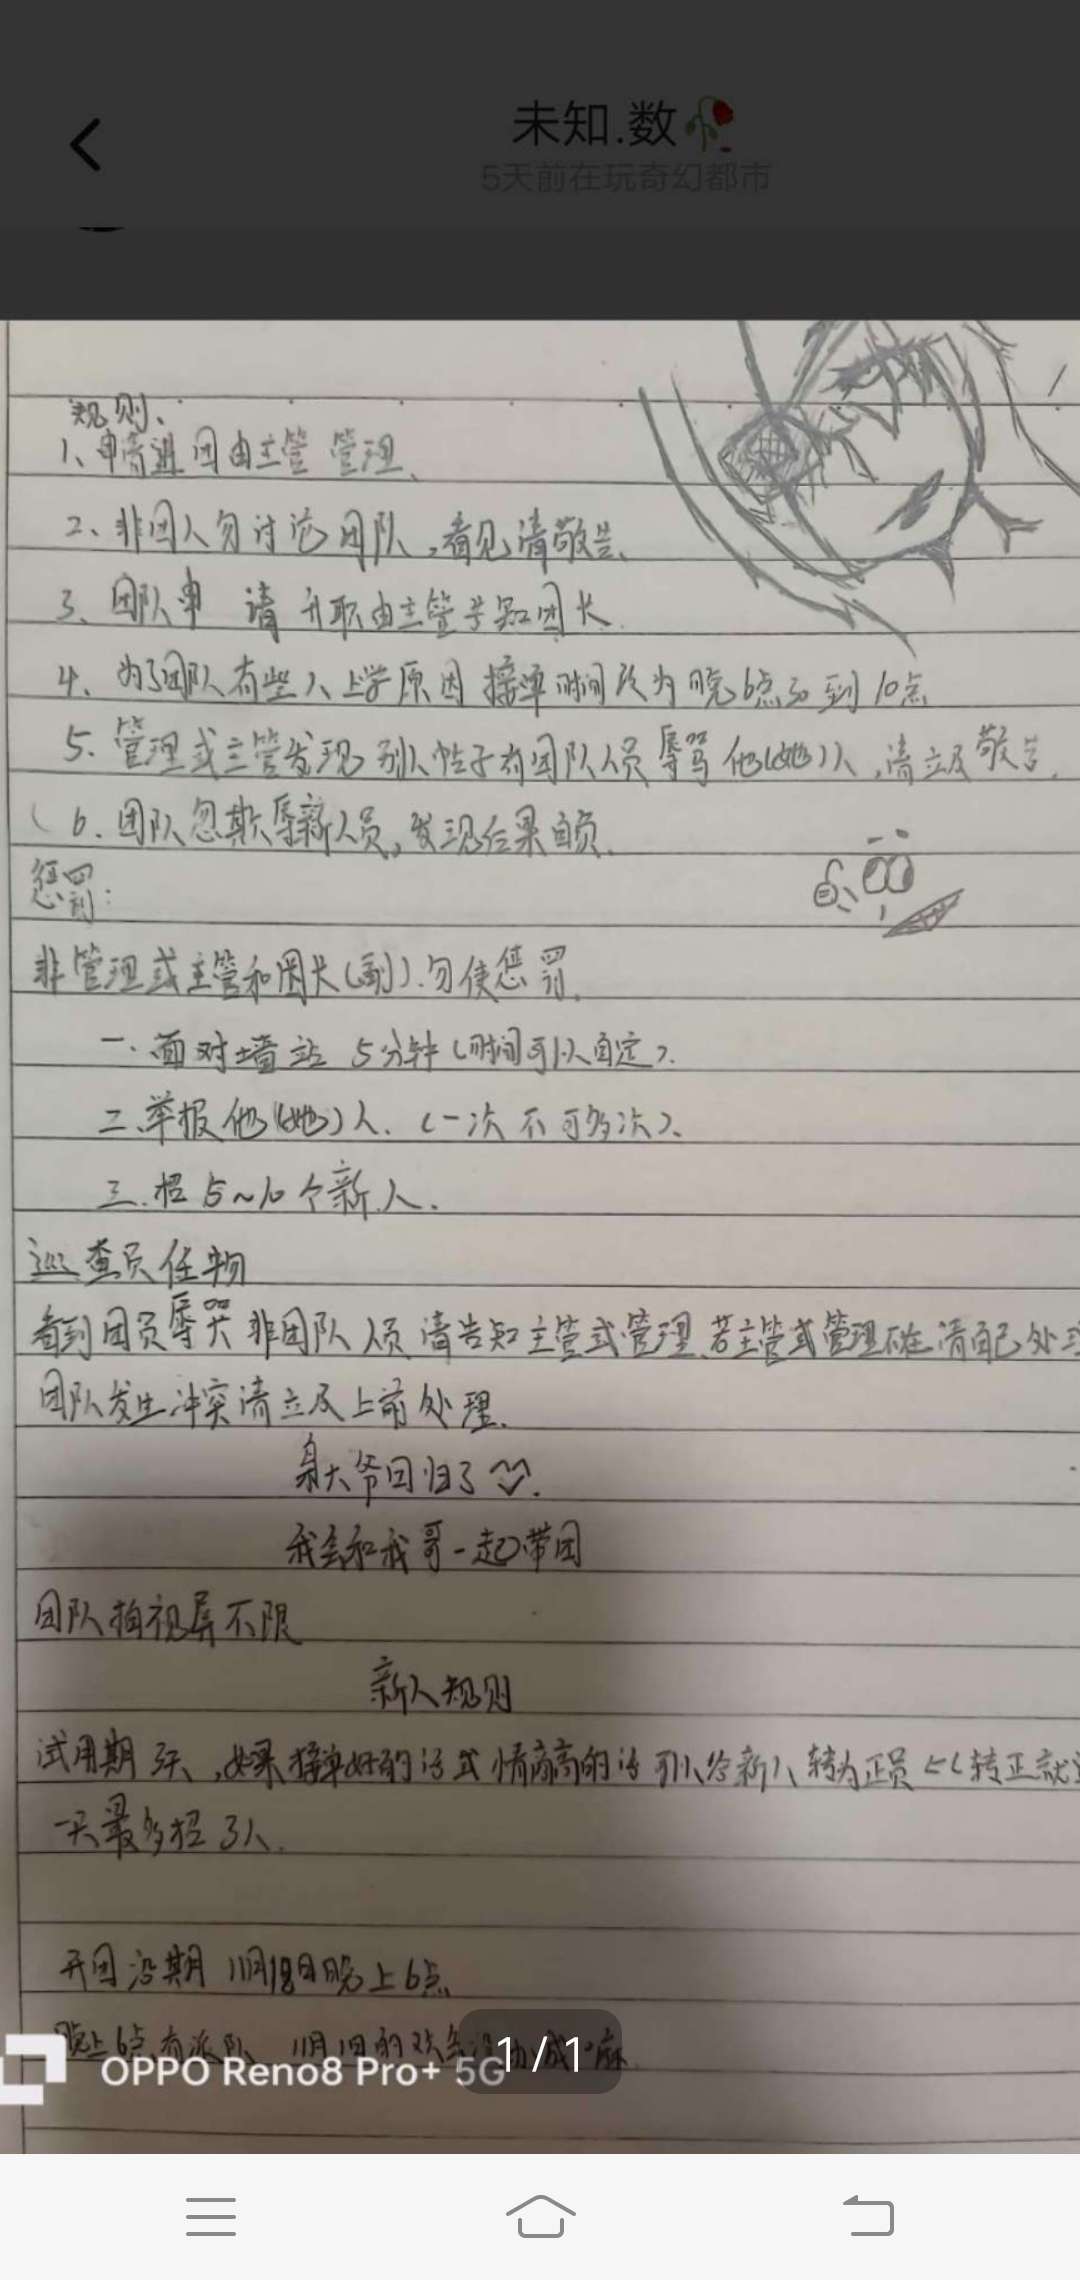 未知.数🥀
5天前在玩奇幻都市
规则、
1、申请进团由主管 管理、
2、非团人勿讨论团队,看见请敬告、
3、团队申 请升职由主管告知团长.
4、为了团队有些人上学原因接单时间改为晚6点30到10点
5、管理或主管发现别人帖子有团队人员辱骂他(她)人,请立及敬告.
6、团队忽欺辱新人员,发现后果自负、
惩罚:
非管理或主管和团长(副).勿使惩罚.
一.面对墙站5分钟(时间可以自定).
二.举报他(她)人.(一次不可多次).
三.招5~10个新人.
巡查员任物
看到团员辱哭非团队人员请告知主管或管理.若主管或管理不在请自己处理
团队发生冲突请立及上前处理.
大爷回归了
我会和我哥一起带团
团队拍视屏不限
新人规则
试用期3天,如果接单好的话或情商高的话可以令新人转为正员 转正就
一天最多招3人.
开团 期11月18日晚上6点
晚上6点有派队 11月1日的
1 / 1
OPPO Reno8 Pro+ 5G